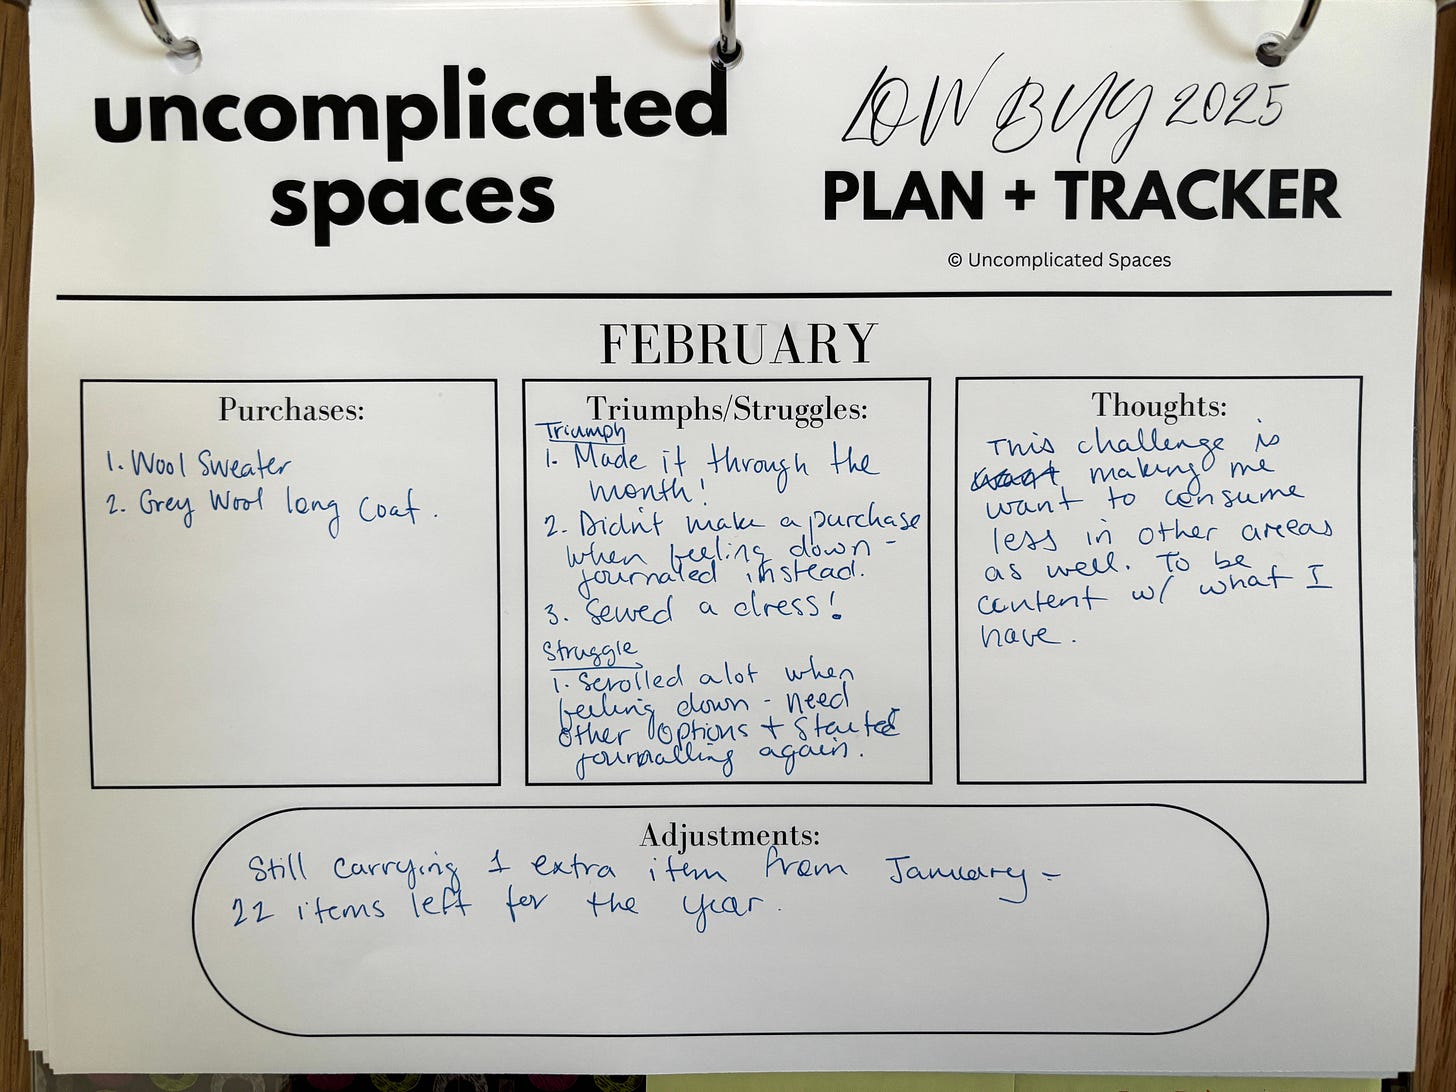 uncomplicated
spaces
LOW BUY 2025
PLAN + TRACKER
© Uncomplicated Spaces
FEBRUARY
Purchases:
1. Wool Sweater
2. Grey Wool long coat.
Triumphs/Struggles:
Triumph
1. Made it through the
month!
2. Didn't make a purchase
when feeling down -
journaled instead.
3. Sewed a dress!
Struggle
1. Scrolled alot when
feeling down - need
other options + started
journalling again.
Thoughts:
This challenge is
making me
want to consume
less in other areas
as well. To be
content w/ what I
have.
Adjustments:
Still carrying 1 extra item from January -
22 items left for the year.